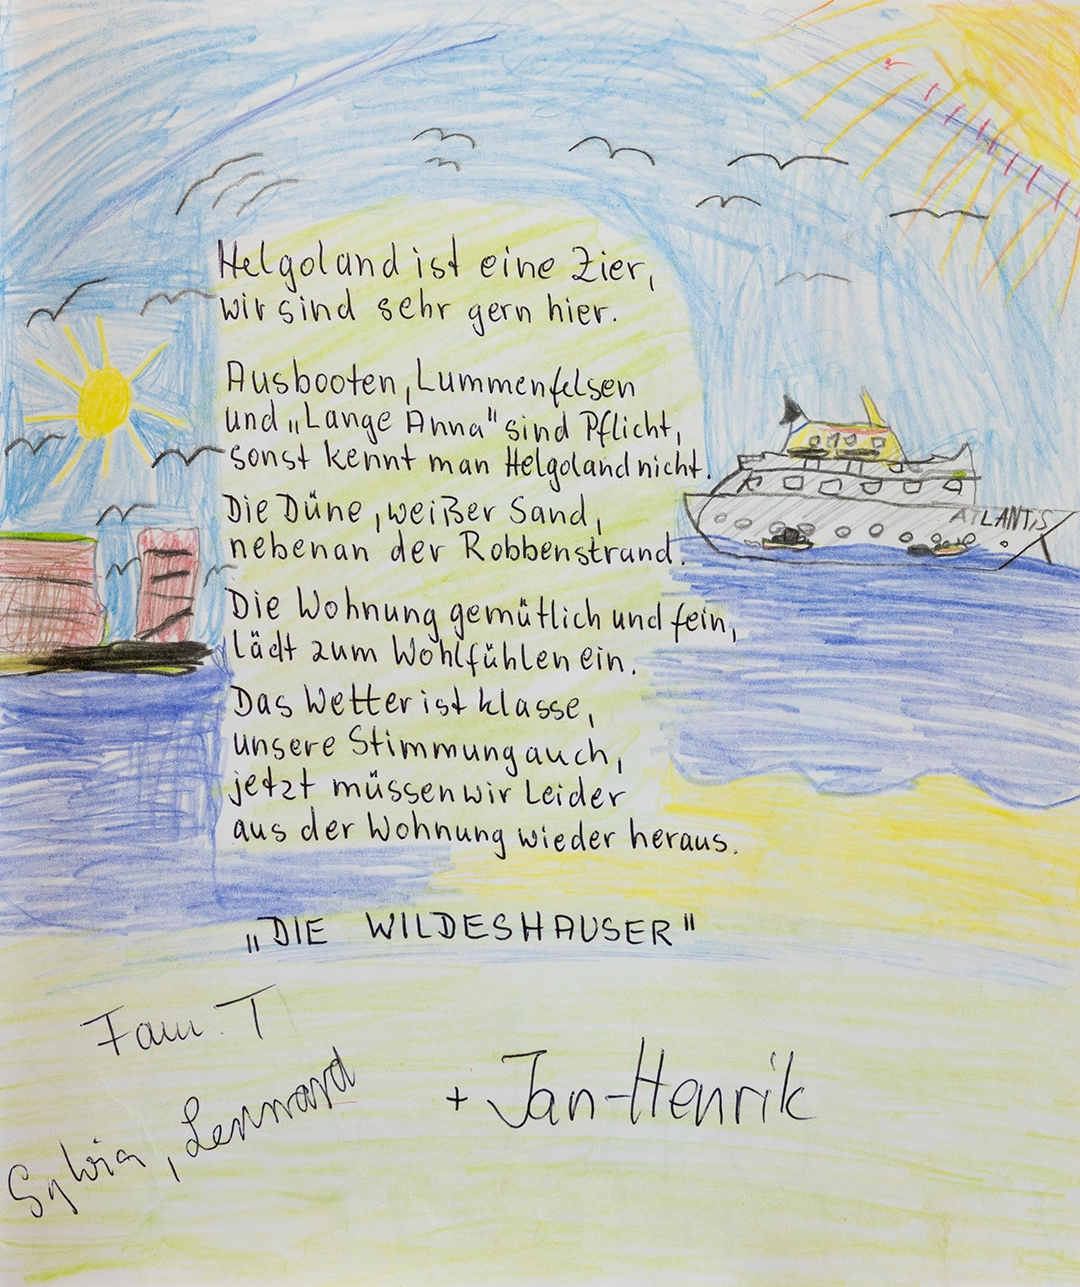 Helgoland ist eine Zier,
wir sind sehr gern hier.
Ausbooten, Lummenfelsen
und „Lange Anna" sind Pflicht,
sonst kennt man Helgoland nicht.
Die Düne, weißer Sand,
nebenan der Robbenstrand.
ATLANTIS
Die Wohnung gemütlich und fein,
lädt zum Wohlfühlen ein.
Das Wetter ist klasse,
unsere Stimmung auch,
jetzt müssen wir Leider
aus der Wohnung wieder heraus.
„DIE WILDESHAUSER"
Fam. T
Sylvia, Lennard
+ Jan-Henrik